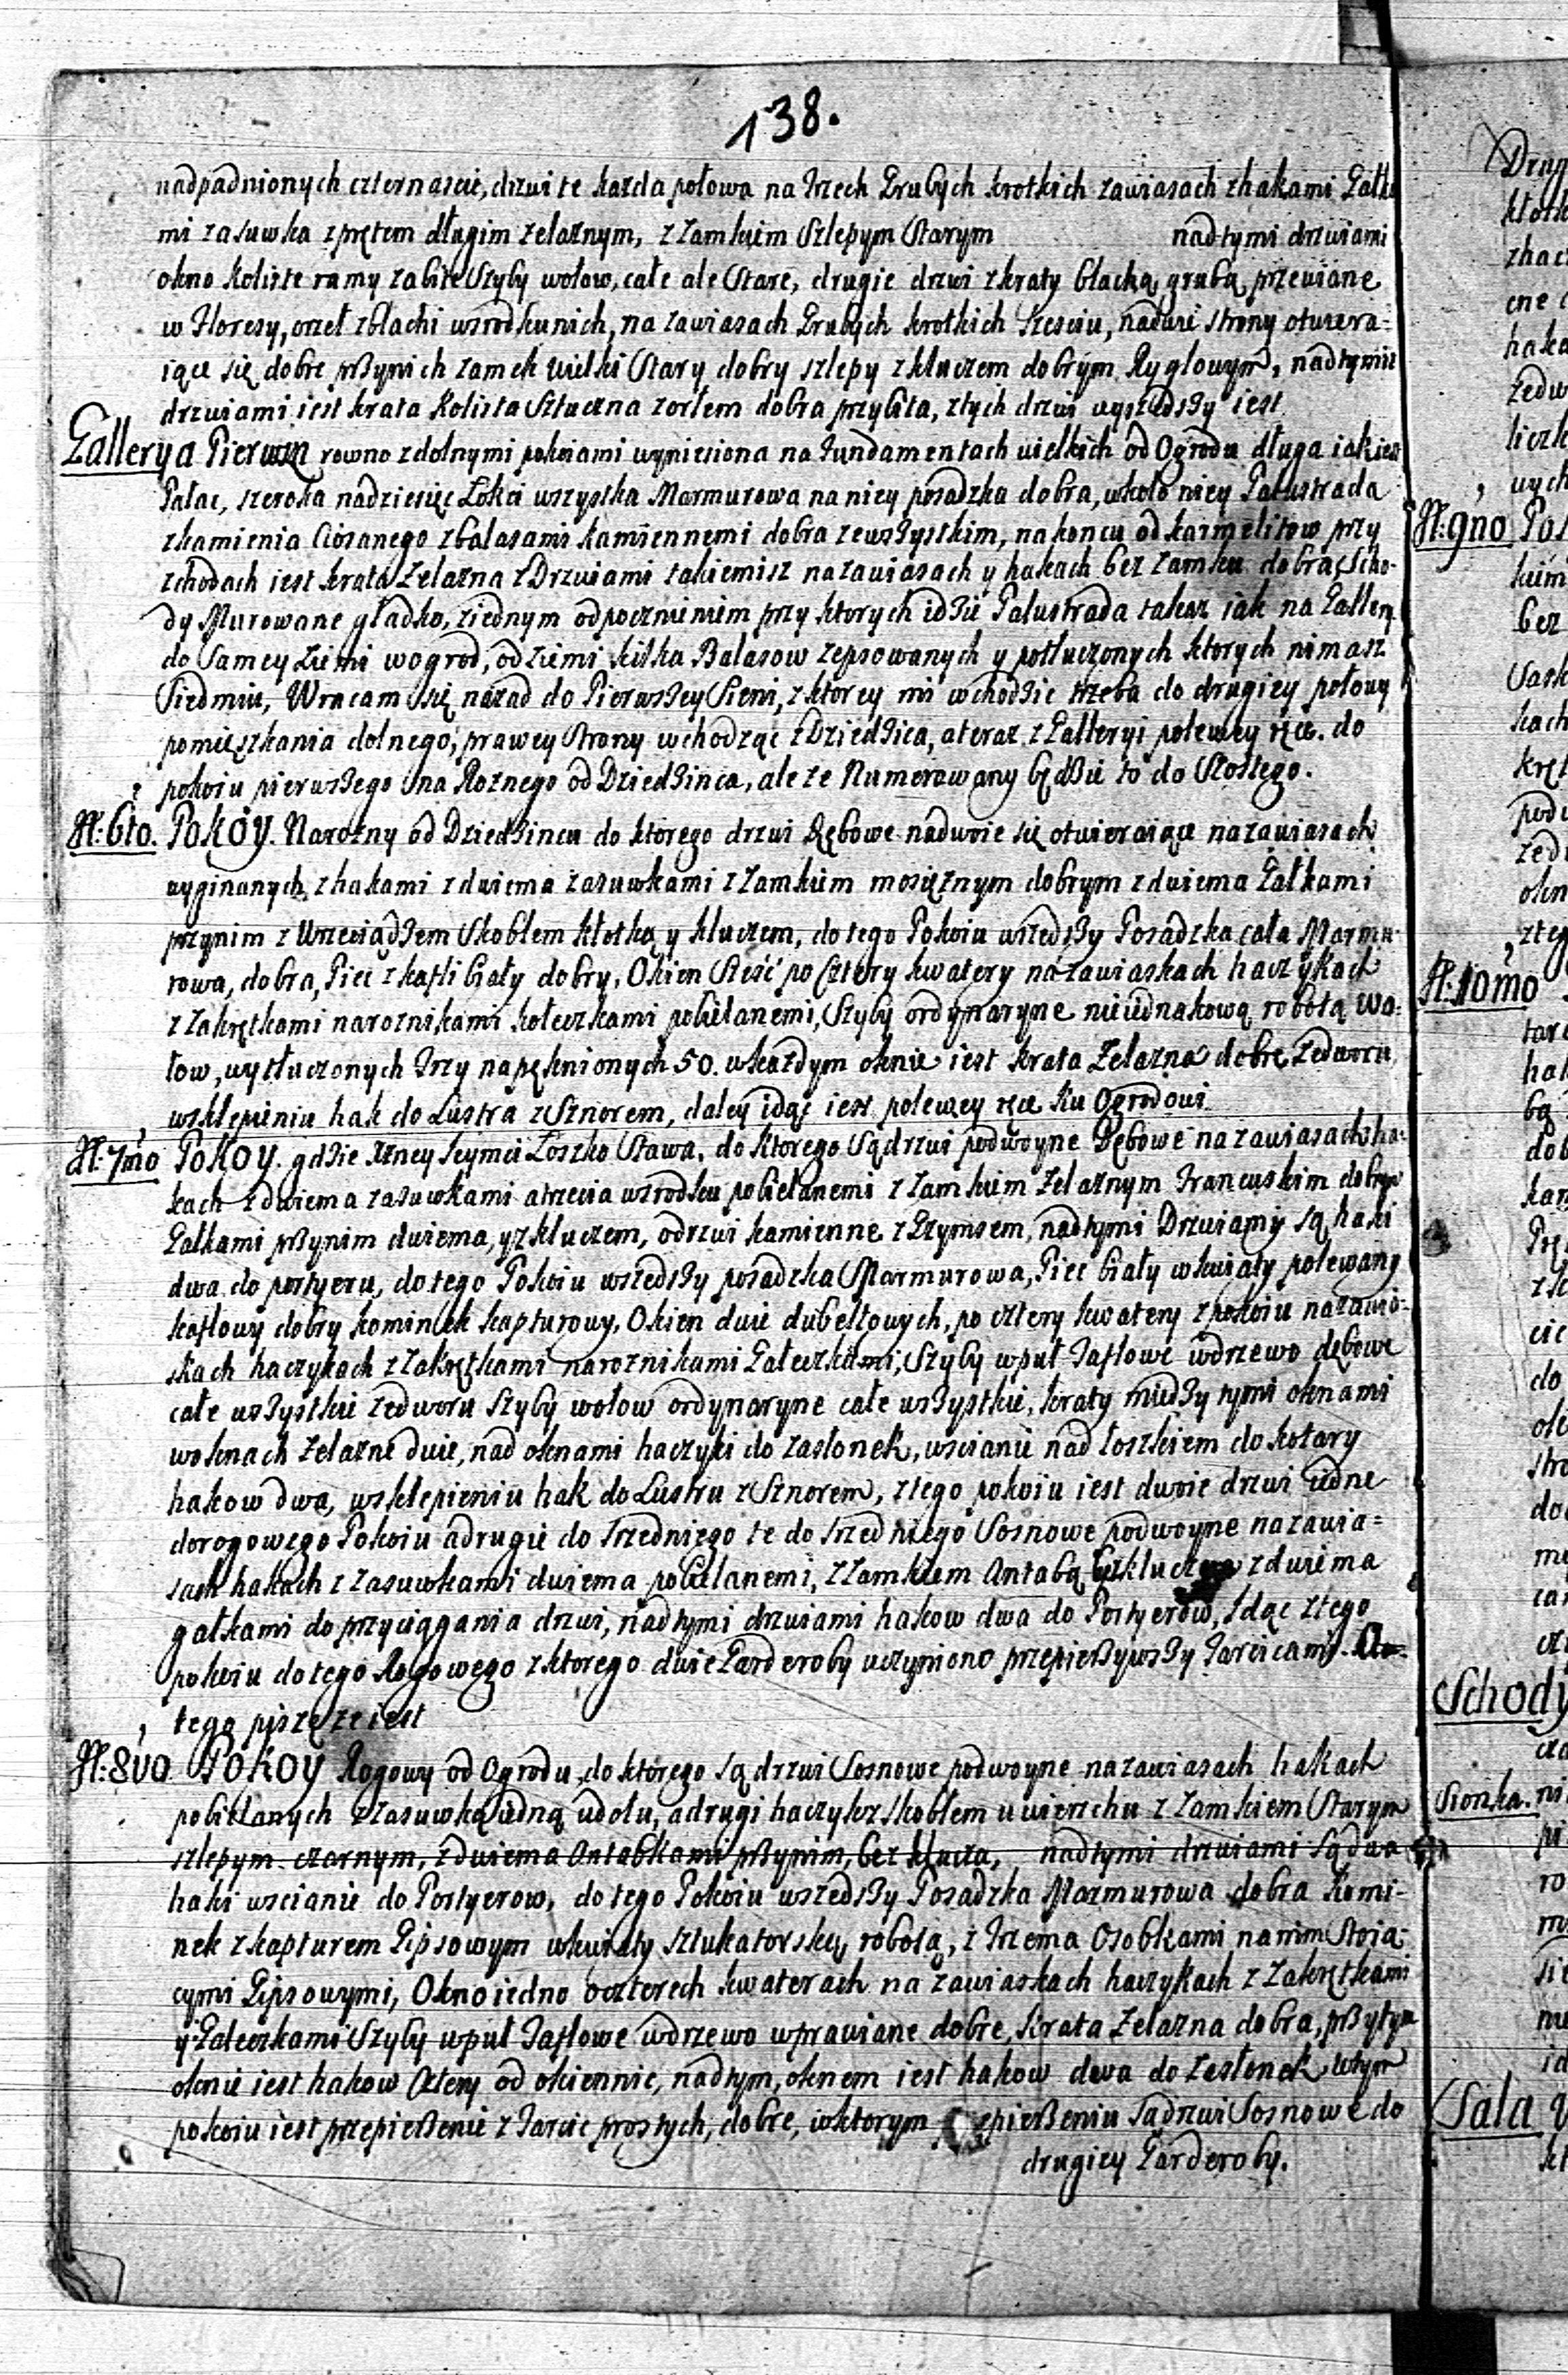 138.
nadpadnionych czternascie, drzwi te kazda połowa na Trzech Grubych krotkich zawiasach zhakami Gałka
mi zasuwka zprętem długim zelaznym, z Zamkiem Szlepym Starym nadtymi drzwiami
okno koliste ramy zabite Szyby wołow, całe ale Stare, drugie drzwi zkraty blachą grubą przewiane
w Floresy, orzeł zblachi wsrodku nich, na zawiasach Grubych krotkich Szesciu, nadwie strony otwiera=
iące się dobre przynich zamek wielki Stary dobry szlepy z kluczem dobrym Ryglowym, nadtymisz
drzwiami iest krata Kolista Sztuczna zorłem dobra przybita, ztych drzwi wyszedszy iest
Gallerya Pierwsza rowno zdolnymi pokoiami wyniesiona na Fundamentach wielkich od Ogrodu długa iak iest
Pałac, szeroka nadziesięc Łokci wszystka Marmurowa na niey posadzka dobra, wkoło niey Palustrada
zkamienia Ciosanego zbalasami kamiennemi dobra zewszystkim, na koncu od karmelitow przy
zchodach iest krata Zelazna z Drzwiami takiemisz nazawiasach y hakach bez zamku dobra, Scho-
dy Murowane gładko, ziednym odpocznieniem przy ktorych idzie Palustrada takaz iak na Gallery
do Samey Ziemi wogrod, od ziemi kilka Balasow zepsowanych y potłuczonych ktorych nimasz
Siedmiu, Wracam się nazad do Pierwszey Sieni, z ktorey mi wchodzic trzeba do drugiey połowy
pomieszkania dolnego, prawey Strony wchodząc z Dziedzica, a teraz z Galleryi polewey ręce. do
pokoiu pierwszego Ina Roznego od Dziedzinca, ale ze Numerowany będzie to do Szostego.
N: 6to. Pokoy. Narozny od Dziedzincu do ktorego drzwi Dębowe nadwoie się otwieraiące nazawiasach
wyginanych zhakami zdwiema zasuwkami z Zamkiem mosięznym dobrym zdwiema Gałkami
przynim z Wrzeciądzem Skoblem kłotką y kluczem, do tego Pokoiu wszedszy Posadzka cała Marmu-
rowa, dobra, Piec z kafli biały dobry, Okien Sześć po Cztery kwatery nazawiaskach haczykach
z Zakrętkami naroznikami kołeczkami pobielanemi, Szyby ordynaryne nieiednakową robotą Wo=
łow, wytłuczonych Trzy napęknionych 50. wkazdym oknie iest krata Zelazna dobre Zedworu
wsklepieniu hak do Lustra z Sznorem, daley idąc iest polewey ręce Ku Ogrodowi
N: 7mo Pokoy. gdzie Xzney Jeymci Łoszko Stawa, do ktorego Są drzwi podwoyne Dębowe na zawiasach ha=
kach zdwiema zasuwkami atrzecia wsrodku pobielanemi z Zamkiem Zelaznym Francuskim dobrym
Gałkami przynim dwiema, yzkluczem, odrzwi kamienne z Gzymsem, nadtymi Drzwiamy są haki
dwa do portyeru, do tego Pokoiu wszedszy posadzka Marmurowa, Piec biały wkwiaty polewany
kaflowy dobry kominek kapturowy, Okien dwie dubeltowych, po cztery kwatery zpokoiu nazawia=
skach haczykach z Zakrętkami naroznikami Gałeczkami, Szyby wpuł Taflowe wdrzewo dębowe
całe wszystkie Zedworu Szyby wołow ordynaryne całe wszystkie, kraty między tymi oknami
woknach Zelazne dwie, nad oknami haczyki do zasłonek, wscianie nad łoszkiem do kotary
hakow dwa, wsklepieniu hak do Lustru z Sznorem, ztego pokoiu iest dwoie drzwi iedne
dorogowego Pokoiu adrugie do Srzedniego te do Srzedniego Sosnowe podwoyne nazawia=
sach hakach z Zasuwkami dwiema pobielanemi, z Zamkiem Antabą yzkluczem zdwiema
gałkami do przyciągania drzwi, nadtymi drzwiami hakow dwa do Portyerow, Idąc ztego
pokoiu do tego Rogowego z ktorego dwie Garderoby uczyniono przepierzywszy Tarcicami.
tego piszę ze iest
N: 8vo Pokoy Rogowy od Ogrodu, do ktorego są drzwi Sosnowe podwoyne nazawiasach hakach
pobielanych zZasuwką iedną udołu, adrugi haczyk zskoblem uwierzchu z Zamkiem Starym
szlepym czarnym, zdwiema Antabkami przynim, bez klucza, nadtymi drzwiami są dwa
haki wscianie do Portyerow, do tego Pokoiu wszedszy Posadzka Marmurowa dobra Komi-
nek zkapturem Gipsowym wkwiaty sztukatorską robotą, z Trzema Osobkami na nim Stoią=
cymi Gipsowymi, Okno iedno oczterech kwaterach na zawiaskach haczykach z Zakrętkami
y Gałeczkami Szyby wpuł Taflowe wdrzewo wprawiane dobre, krata Zelazna dobra, przytym
oknie iest hakow Cztery od okiennic, nadtym, oknem iest hakow dwa do zasłonek wtym
pokoiu iest przepierzenie z Tarcic prostych, dobre, wktorym przepierzeniu są drzwi Sosnowe do
drugiey Garderoby.
N: 9no
N: 10mo
Schody
Sionka.
Sala